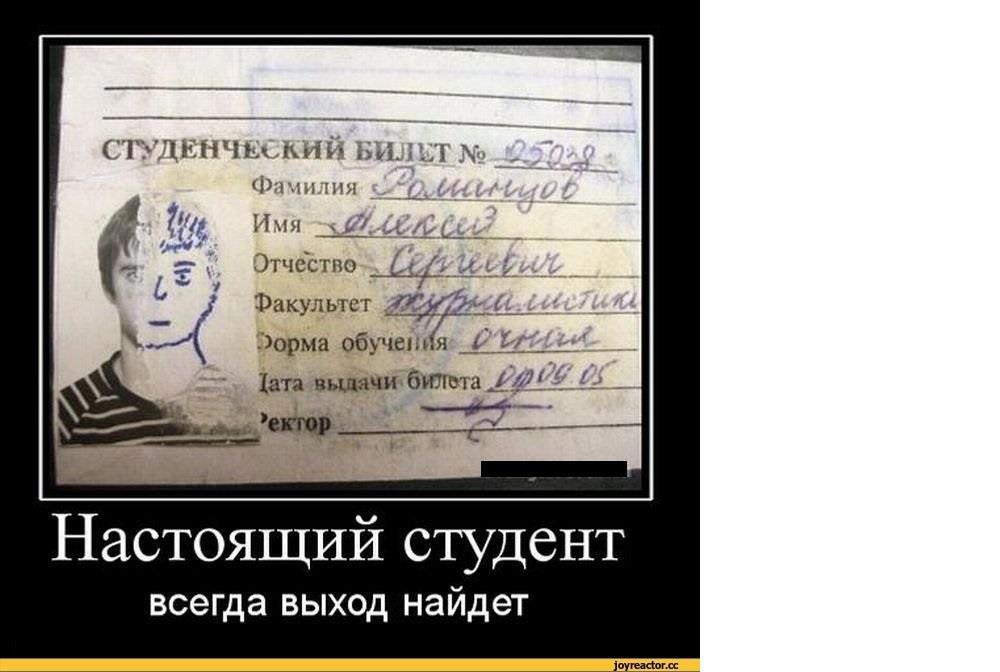 СТУДЕНЧЕСКИЙ БИЛЕТ № 05038
Фамилия Романцов
Имя Алексей
Отчество Сергеевич
Факультет журналистики
Форма обучения очная
Дата выдачи билета 09.05
Ректор
Настоящий студент
всегда выход найдет
joyreactor.cc